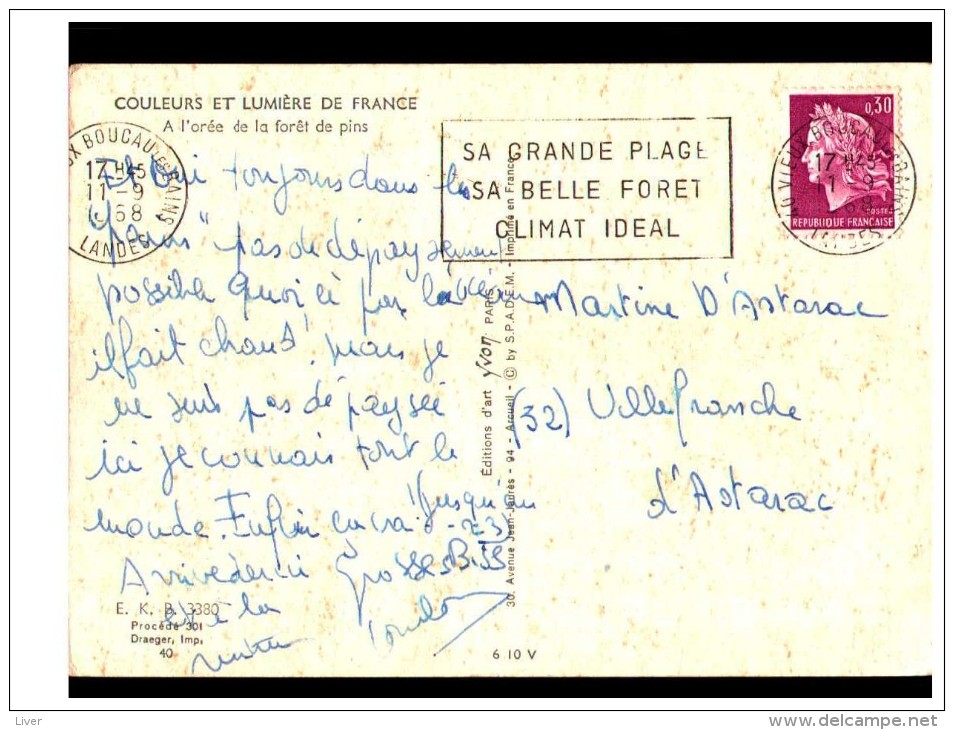 COULEURS ET LUMIÈRE DE FRANCE
A l'orée de la forêt de pins
VIEUX BOUCAU LES BAINS
17 H45
11 - 9
1968
LANDES
SA GRANDE PLAGE
SA BELLE FORET
CLIMAT IDEAL
0,30
POSTES
REPUBLIQUE FRANÇAISE
VIEUX BOUCAU LES BAINS
17 H45
11 - 9
1968
LANDES
Et oui toujours dans les
"pins" pas de dépaysement
possible quoi ici par
il fait chaud! mais je
ne suis pas dépaysée
ici je connais tout le
monde. Enfin ça va! (jusqu'au
23)
Arrivederci Grosses BISES
et à la
Martine D'Astarac
(32) Villefranche
d'Astarac
Éditions d'art YVON PARIS
30, Avenue Jean-Jaurès - 94 - Arcueil - © by S.P.A.D.E.M. - Imprimé en France
E. K. B. 3380
Procédé 301
Draeger, Imp.
40
6 10 V
Liver
www.delcampe.net